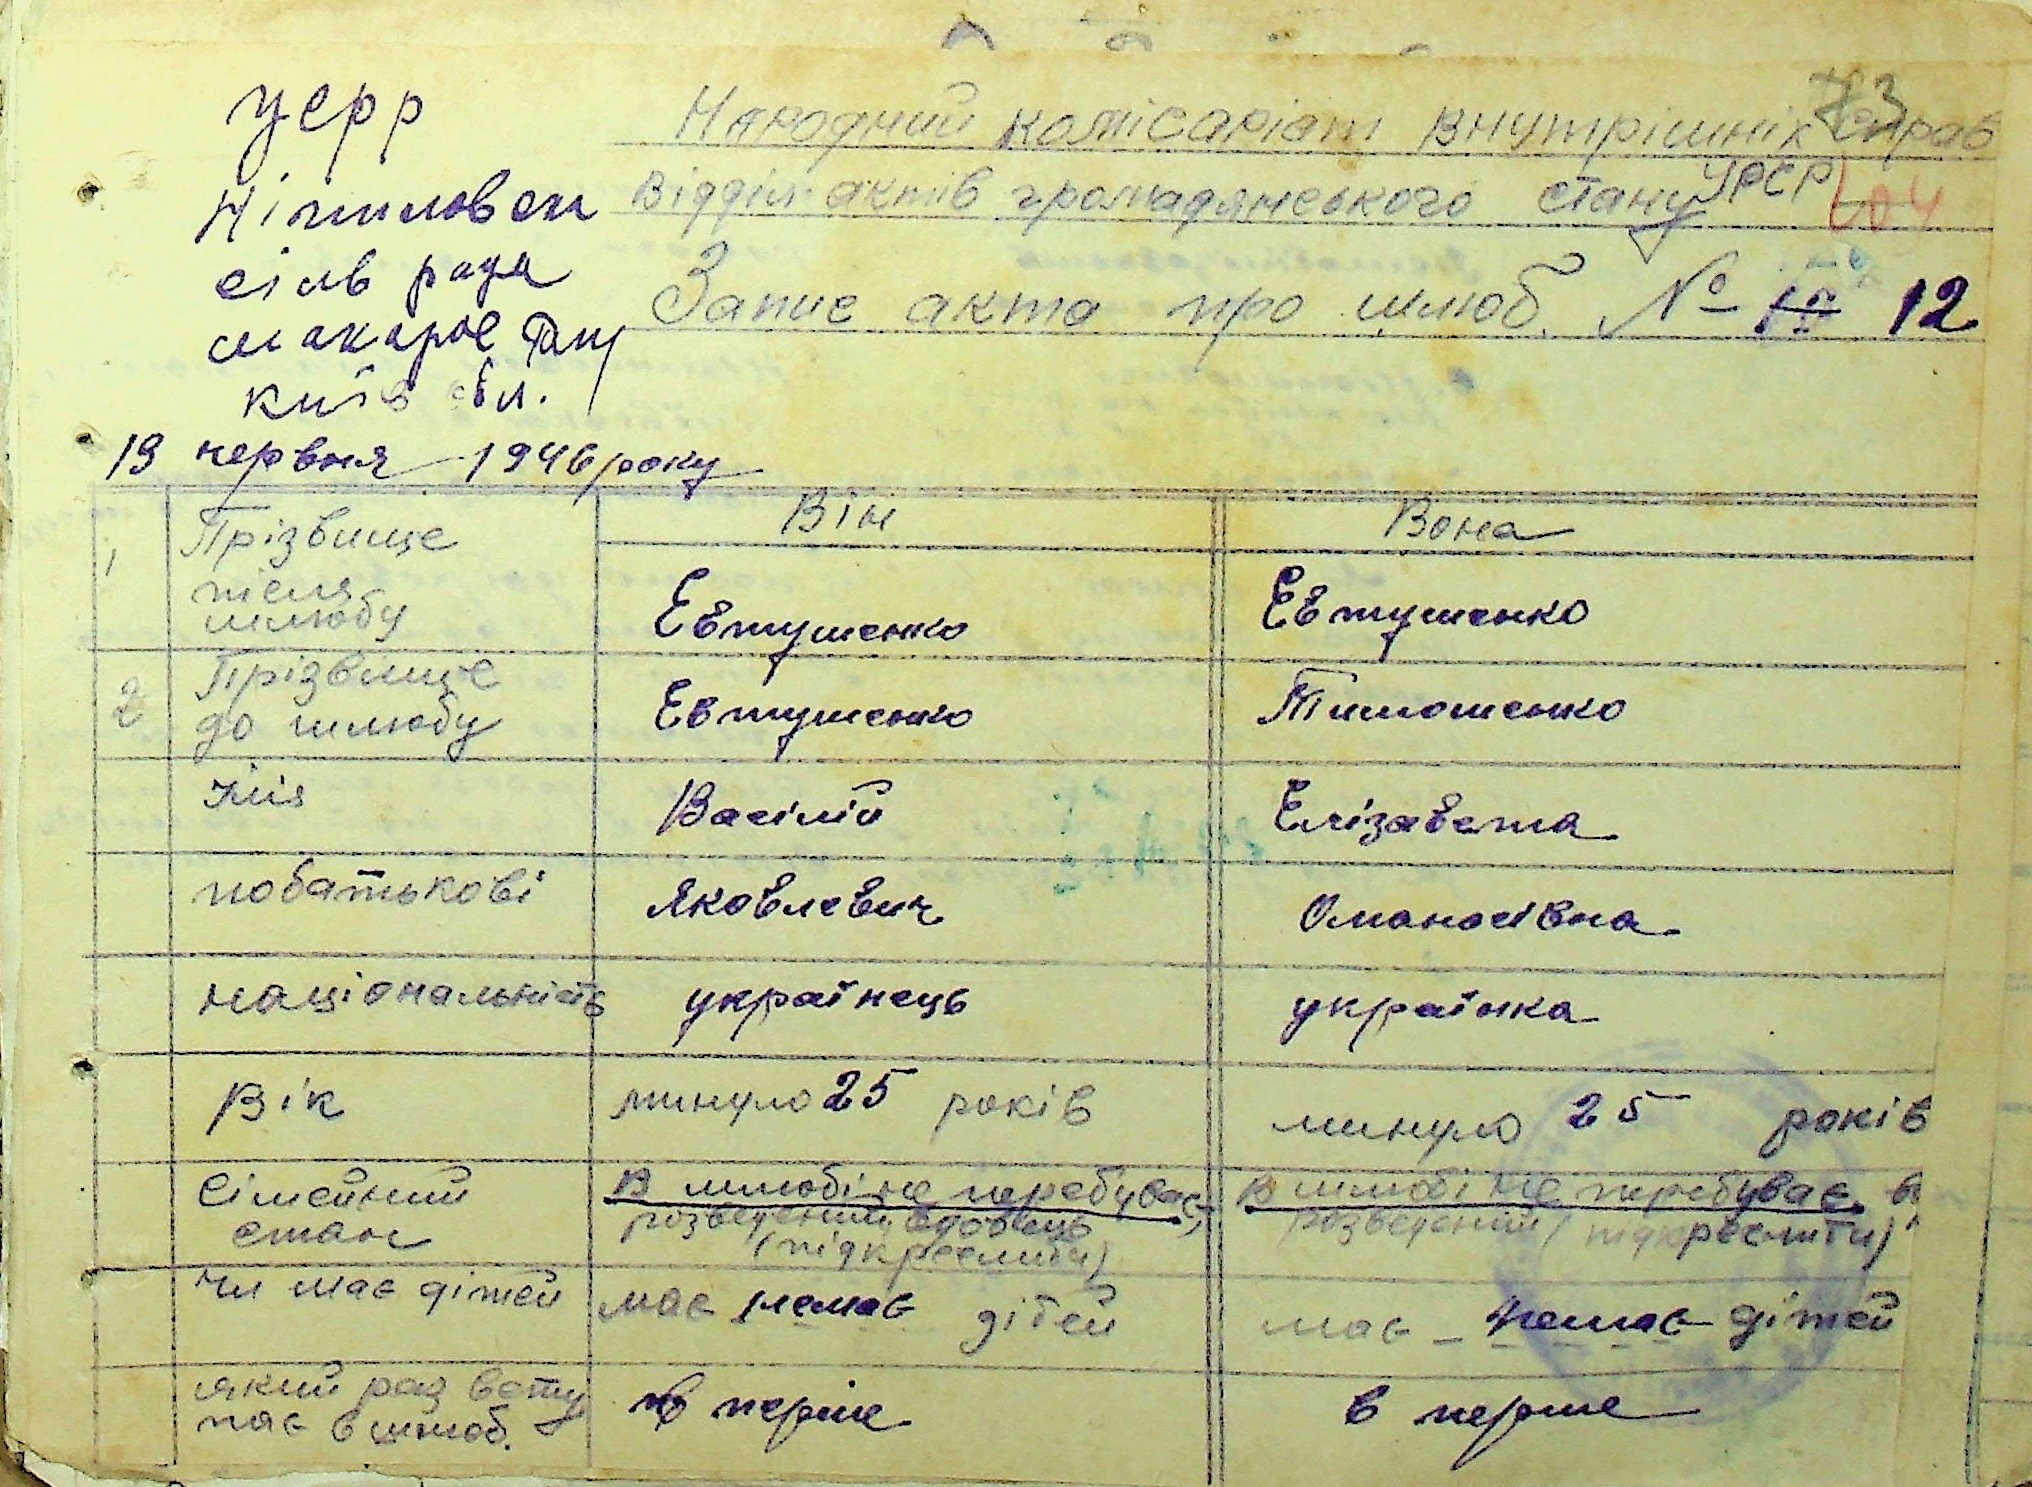 УСРР
Ніжиловен
сіль рада
макаров
київ обл.
19 червня 1946 року
Народний комісаріат внутрішніх справ
Відділ актів громадянського стану УРСР
Запис акта про шлюб № 12
Він Вона
1 Прізвище після шлюбу Евтушенко Евтушенко
2 Прізвище до шлюбу Евтушенко Тимошенко
Імія Васілій Елізавета
побатькові Яковлевич
національність українець українка
Вік минуло 25 років минуло 25 років
Сімейний стан В шлюбі не перебуває, В шлюбі не перебуває
розведений, вдовець розведений (підкреслити)
(підкреслити)
чи має дітей має немає дітей має немає дітей
який раз всту
пає в шлюб. в перше в перше